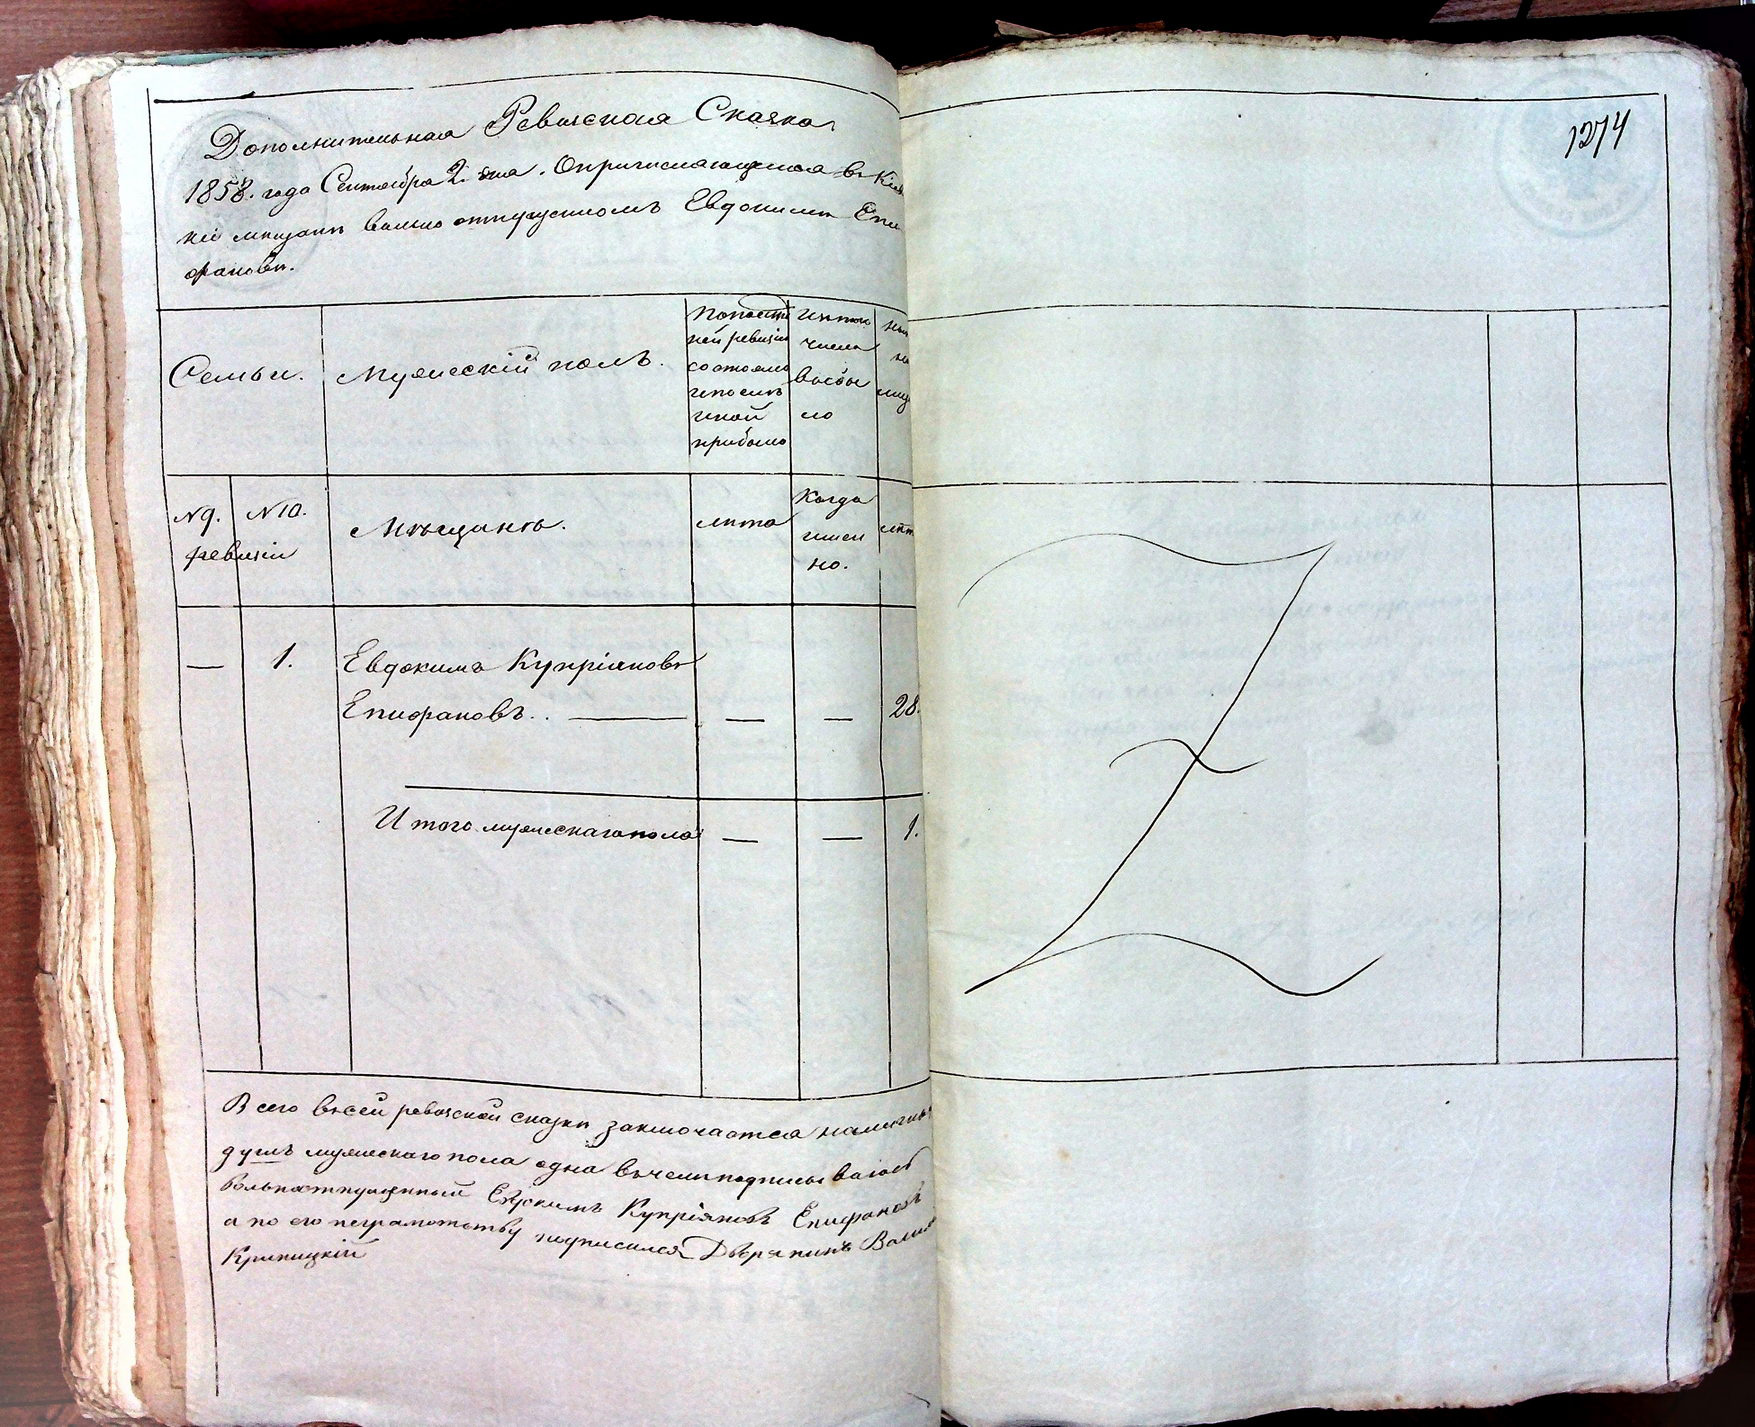 Дополнительная Ревизская Сказка
1858. года Сентября 2. дня. О причисляющемся в Кіев
кіе мещане вольно отпущенномъ Евдокиме Епи
фанове.
1274
Семьи.
Мужескій полъ.
По послѣд
ней ревизіи
состояло
и после
оной
прибыло
Изтого
числа
выбы
ло
Ны
не
лицо
№ 9.
№ 10.
ревизіи
Мѣщане.
лета
Когда
имен
но.
лет
—
1.
Евдокимъ Купріяновъ
Епифановъ. . —
—
—
28.
Итого мужескаго пола
—
—
1.
Всего в сей ревизской сказке заключается наличныхъ
душъ мужескаго пола одна в чемъ подписываюсь
Вольноотпущенный Евдокимъ Купріяновъ Епифановъ
а по его неграмотству подписался Дворянинъ